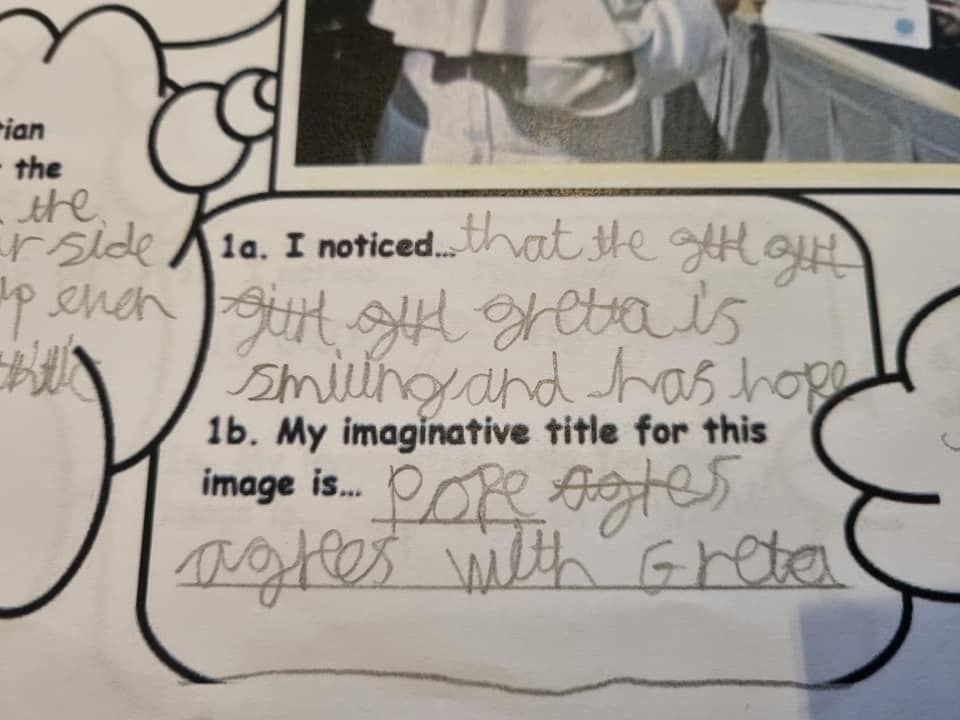 rian
the
the
r side
up even
1a. I noticed... that the
greta is
smiling and has hope
1b. My imaginative title for this
image is... pope
agrees with Greta